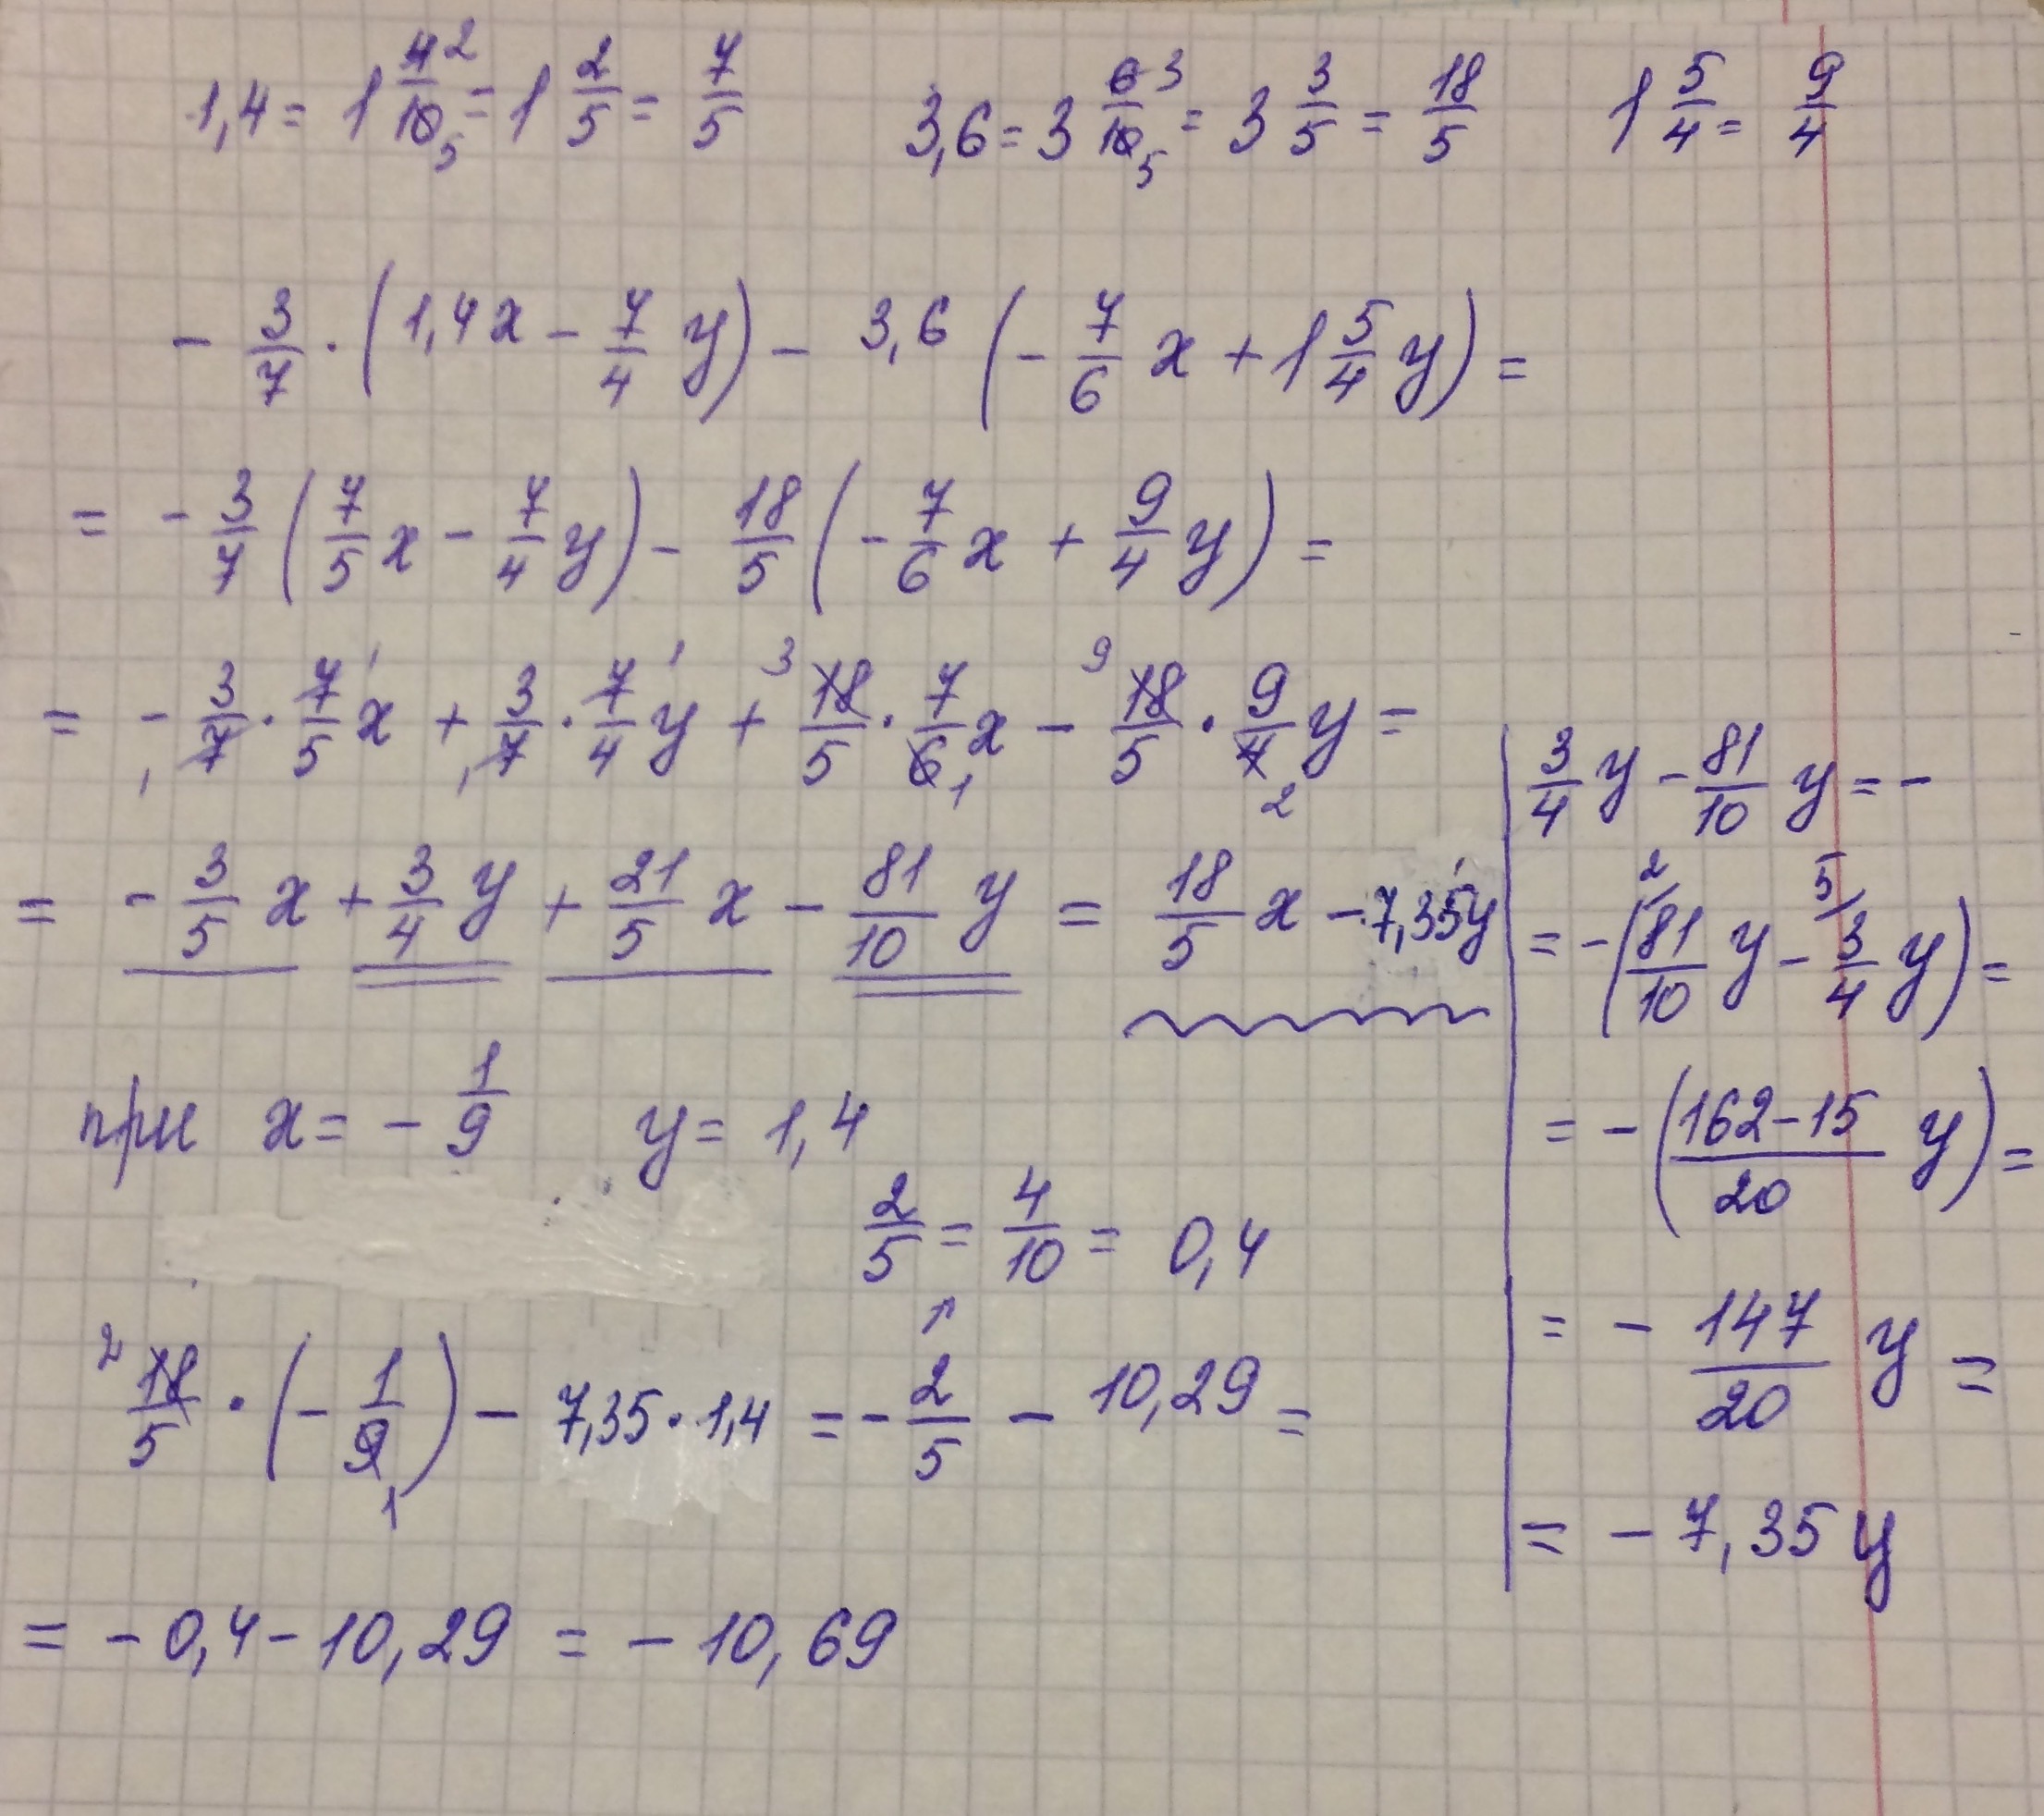 1,4 = 1 4/10 = 1 2/5 = 7/5   3,6 = 3 6/10 = 3 3/5 = 18/5   1 5/4 = 9/4
- 3/7 · (1,4x - 7/4 y) - 3,6 (- 7/6 x + 1 5/4 y) =
= - 3/7 (7/5 x - 7/4 y) - 18/5 (- 7/6 x + 9/4 y) =
= - 3/7 · 7/5 x + 3/7 · 7/4 y + 18/5 · 7/6 x - 18/5 · 9/4 y =
= - 3/5 x + 3/4 y + 21/5 x - 81/10 y = 18/5 x - 7,35y
при x = - 1/9   y = 1,4
2/5 = 4/10 = 0,4
18/5 · (- 1/9) - 7,35 · 1,4 = - 2/5 - 10,29 =
= - 0,4 - 10,29 = - 10,69
3/4 y - 81/10 y = -
= - (81/10 y - 3/4 y) =
= - (162-15/20 y) =
= - 147/20 y =
= - 7,35 y